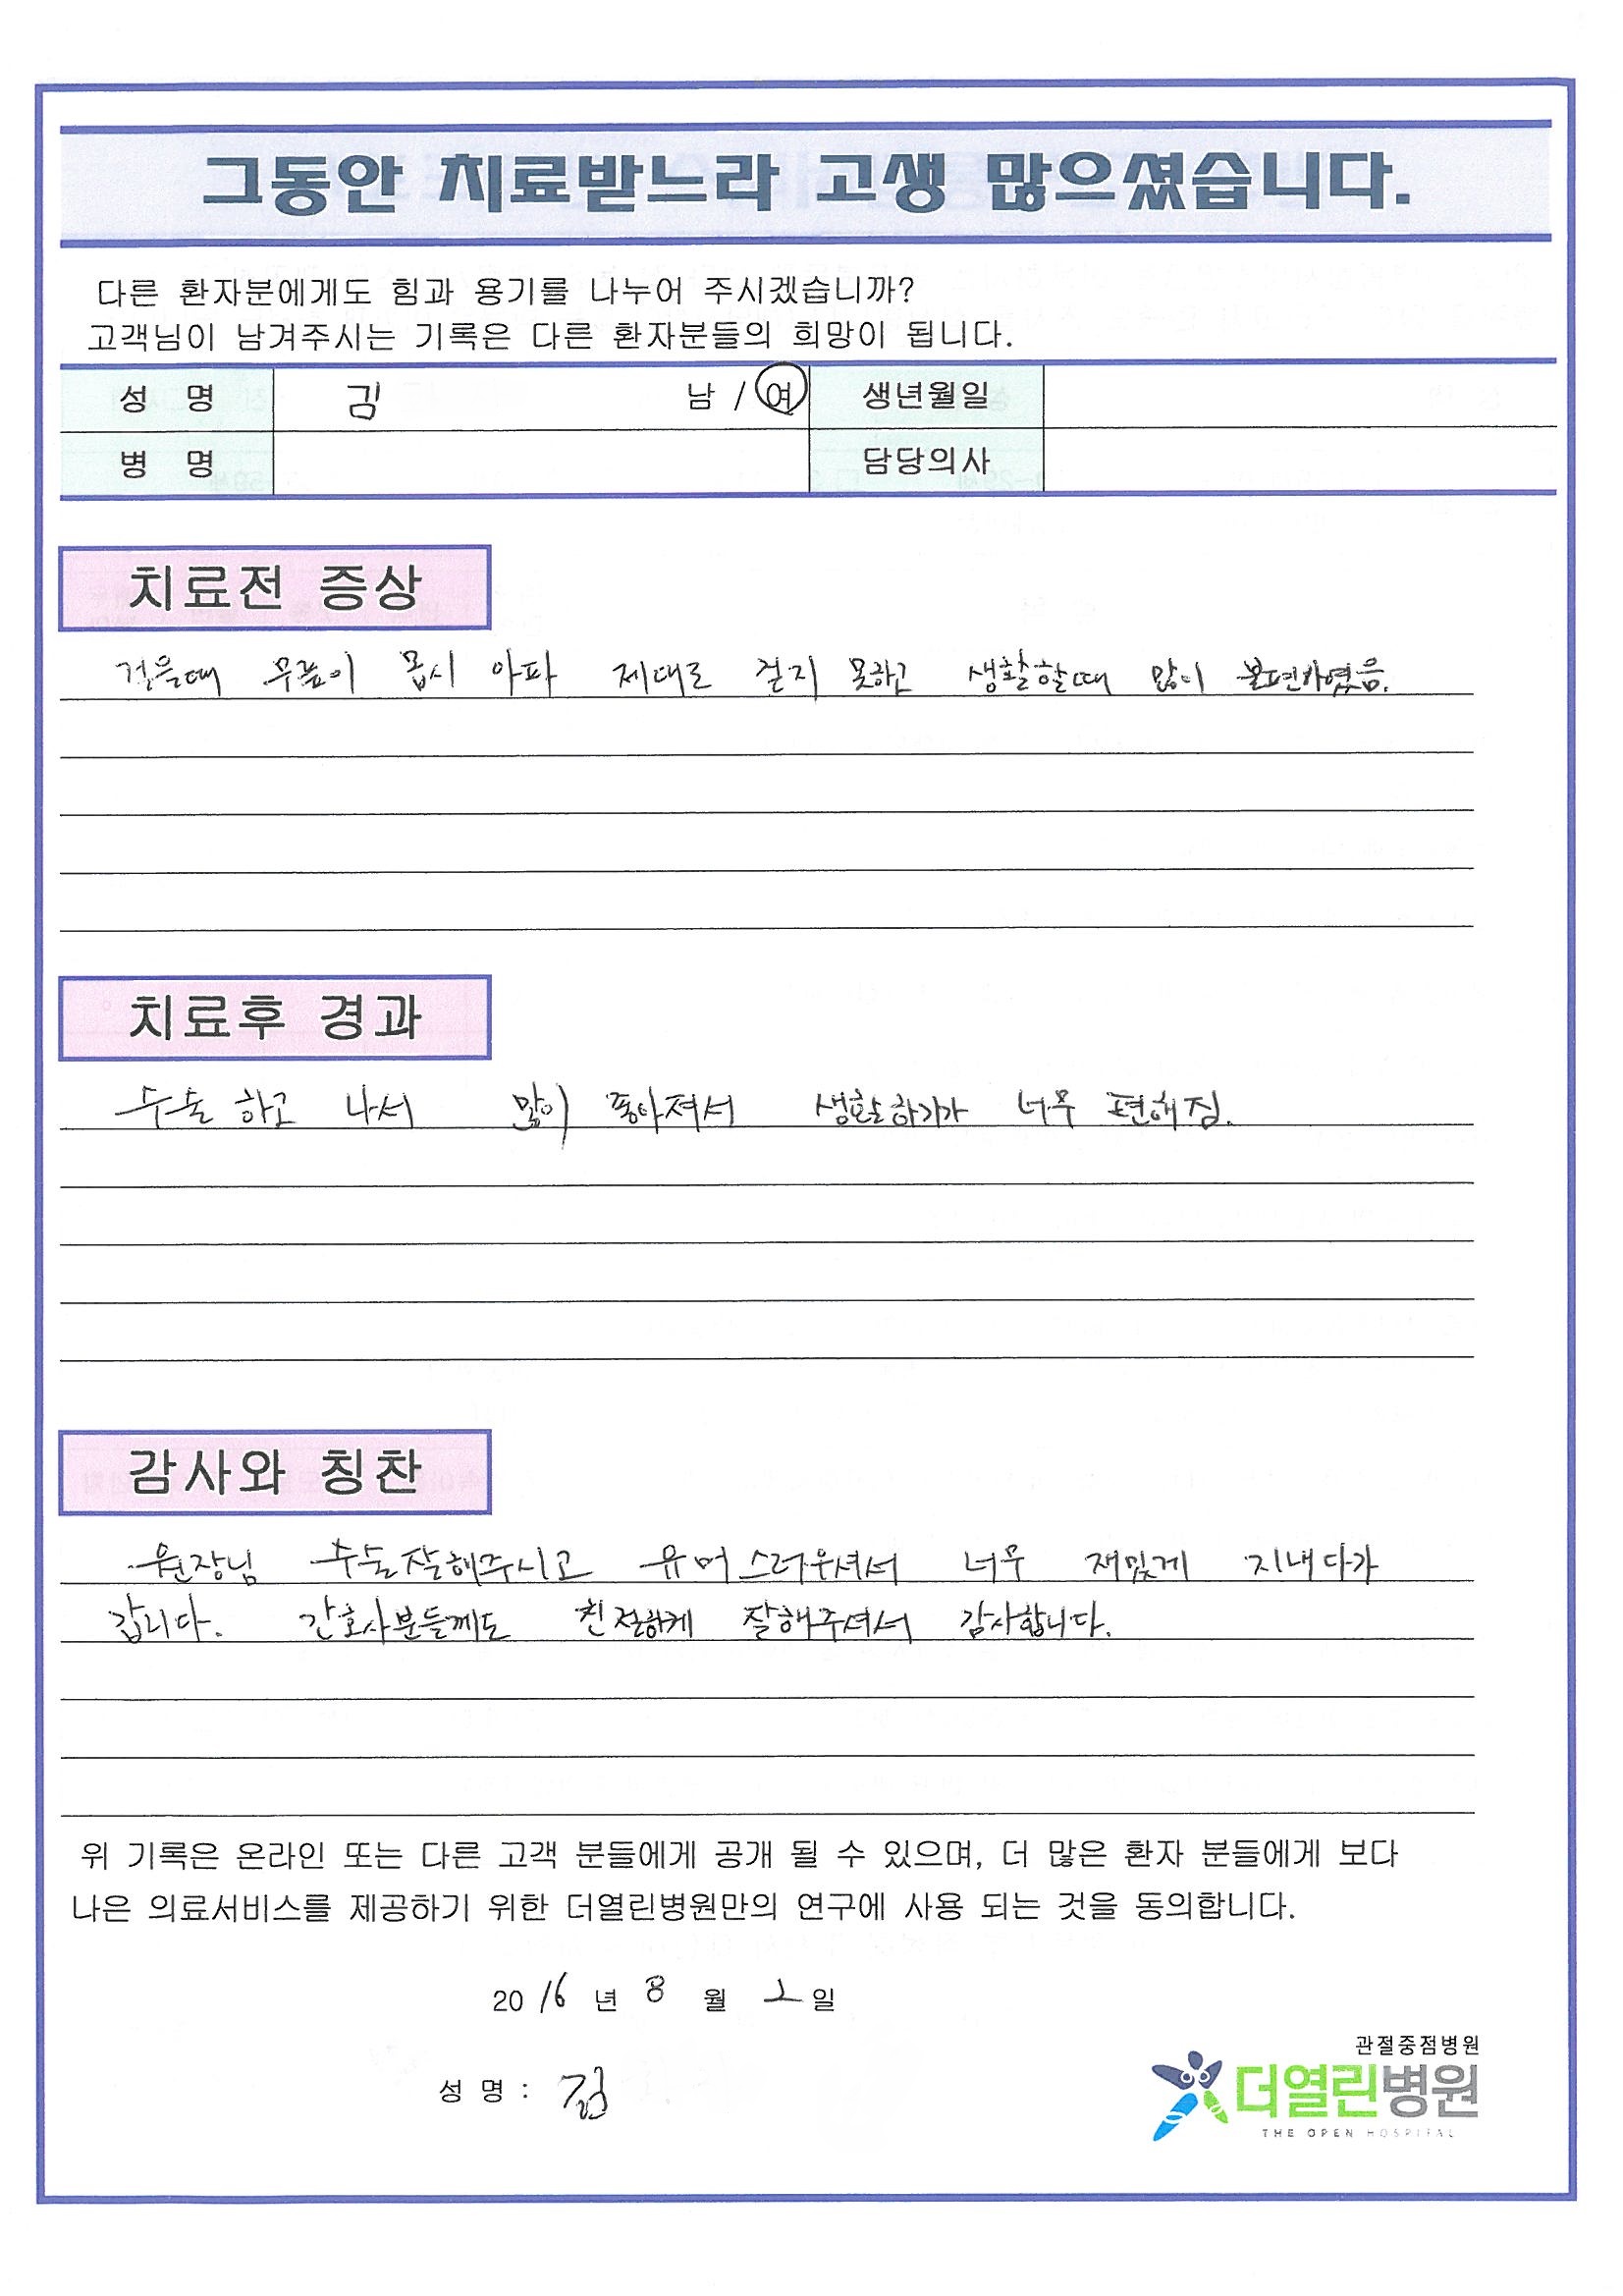 그동안 치료받느라 고생 많으셨습니다.
다른 환자분에게도 힘과 용기를 나누어 주시겠습니까?
고객님이 남겨주시는 기록은 다른 환자분들의 희망이 됩니다.
성 명 김 남 / 여 생년월일
병 명 담당의사
치료전 증상
걸을때 무릎이 몹시 아파 제대로 걷지 못하고 생활할때 많이 불편하였음.
치료후 경과
수술 하고 나서 많이 좋아져서 생활하기가 너무 편해짐.
감사와 칭찬
원장님 수술잘해주시고 유머스러우셔서 너무 재밌게 지내다가
갑니다. 간호사분들께도 친절하게 잘해주셔서 감사합니다.
위 기록은 온라인 또는 다른 고객 분들에게 공개 될 수 있으며, 더 많은 환자 분들에게 보다
나은 의료서비스를 제공하기 위한 더열린병원만의 연구에 사용 되는 것을 동의합니다.
2016 년 8 월 2 일
성 명 : 김
관절중점병원
더열린병원
THE OPEN HOSPITAL